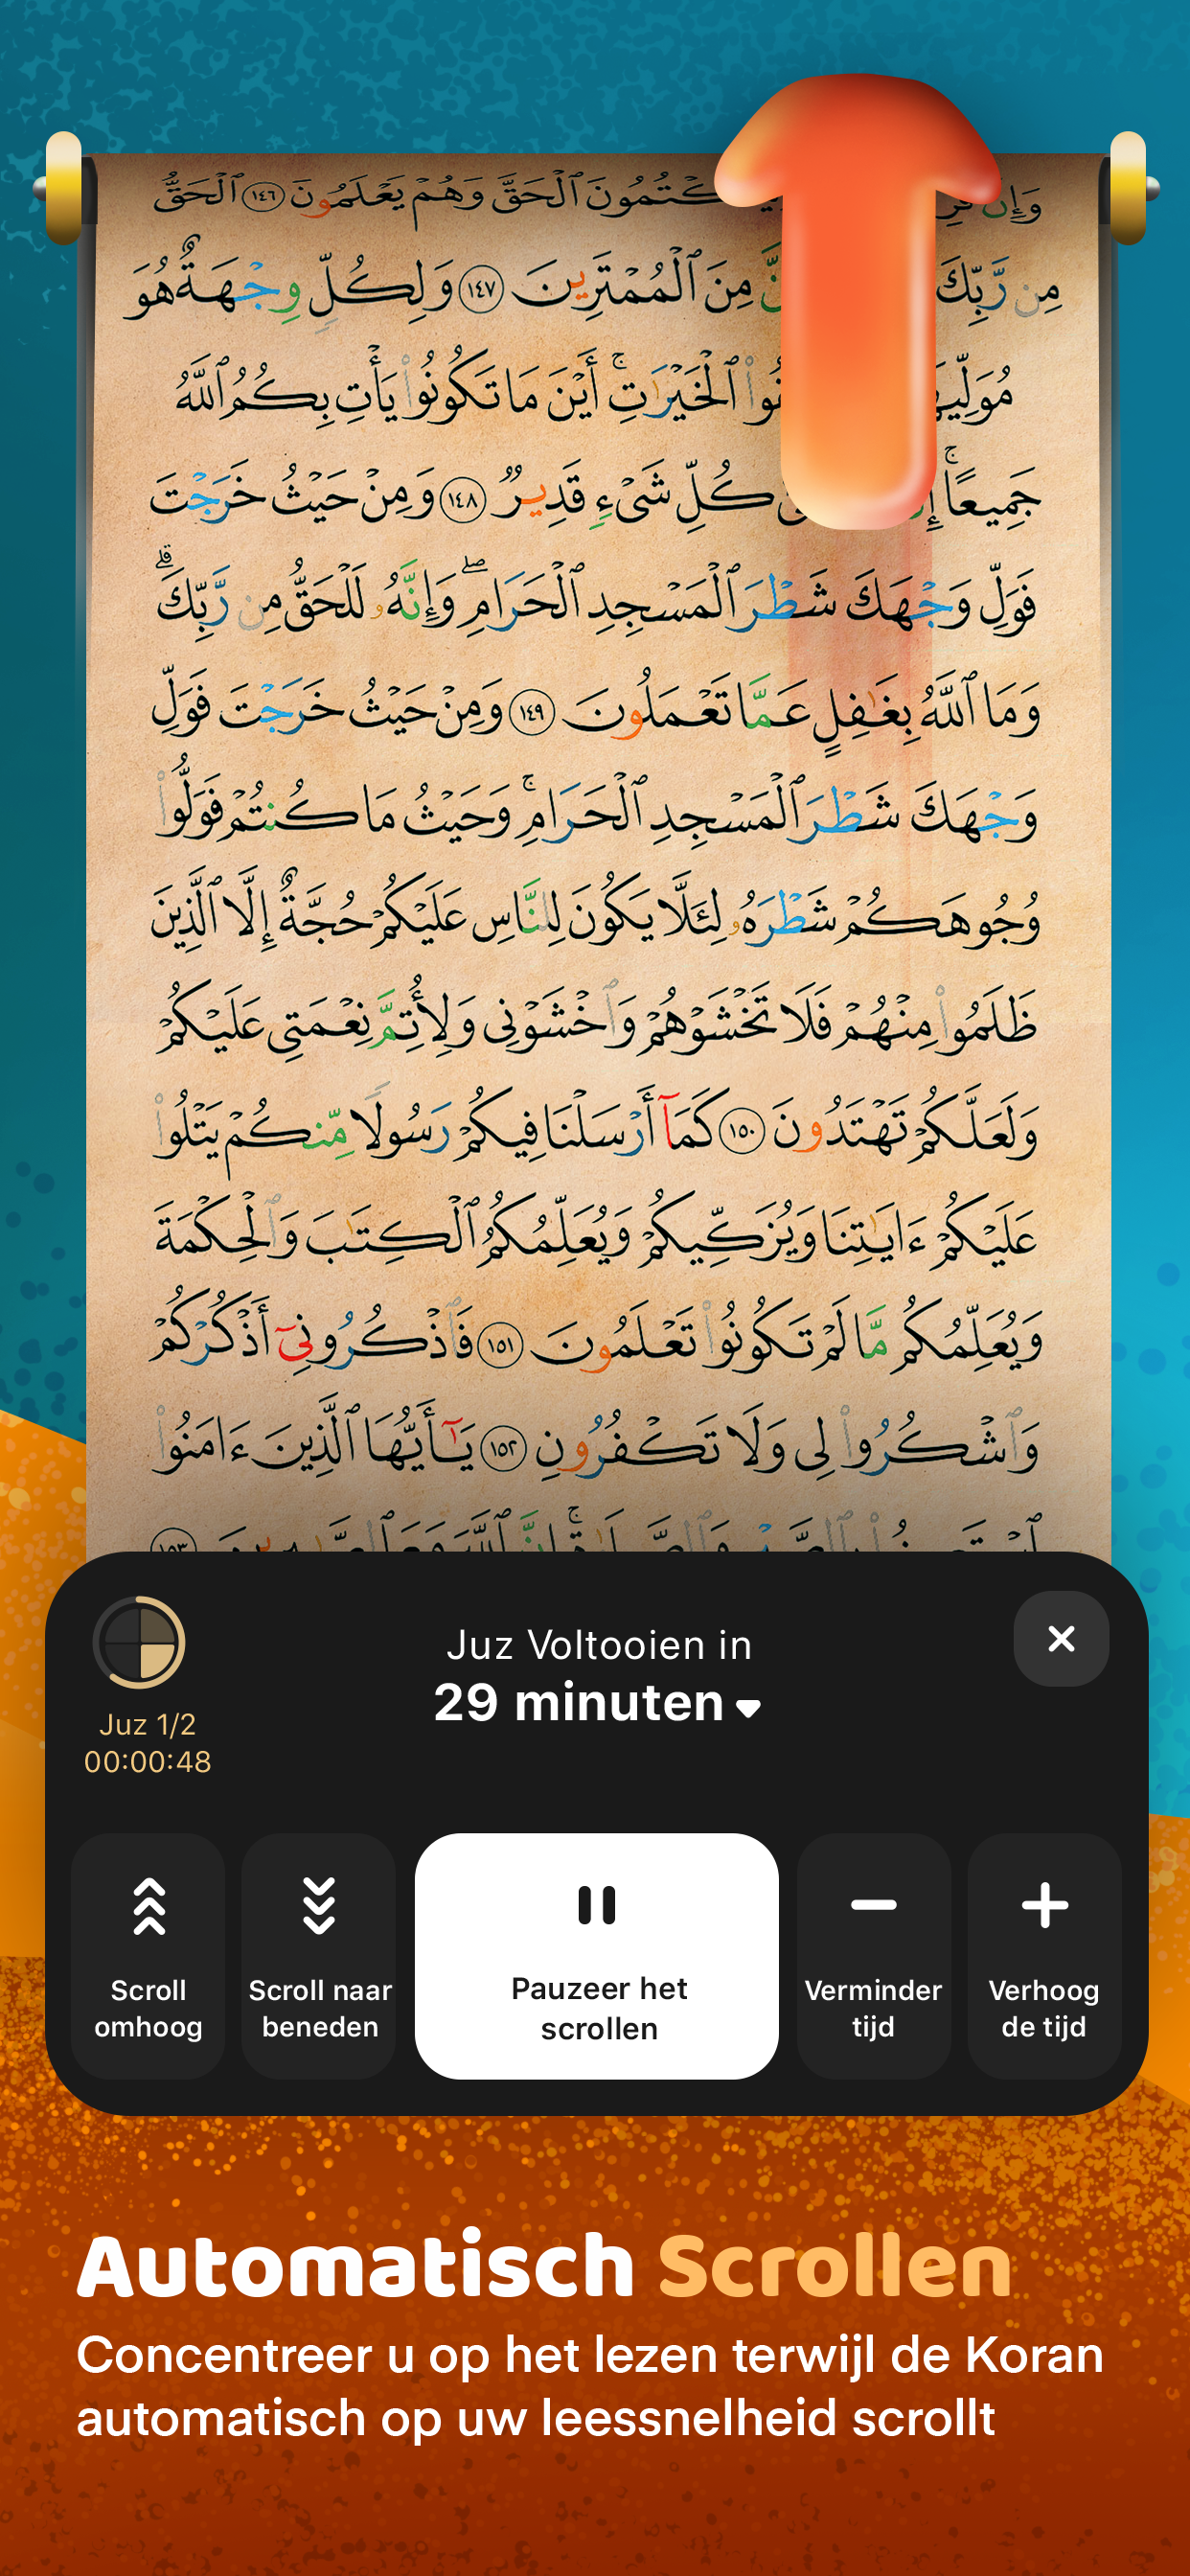 وَإِنَّ يَكْتُمُونَ ٱلْحَقَّ وَهُمْ يَعْلَمُونَ ١٤٦ ٱلْحَقُّ
مِن رَّبِّكَ مِنَ ٱلْمُمْتَرِينَ ١٤٧ وَلِكُلٍّ وِجْهَةٌ هُوَ
ٱلْخَيْرَٰتِ ۚ أَيْنَ مَا تَكُونُوا۟ يَأْتِ بِكُمُ ٱللَّهُ
جَمِيعًا ۚ كُلِّ شَىْءٍ قَدِيرٌ ١٤٨ وَمِنْ حَيْثُ خَرَجْتَ
فَوَلِّ وَجْهَكَ شَطْرَ ٱلْمَسْجِدِ ٱلْحَرَامِ ۖ وَإِنَّهُۥ لَلْحَقُّ مِن رَّبِّكَ ۗ
وَمَا ٱللَّهُ بِغَٰفِلٍ عَمَّا تَعْمَلُونَ ١٤٩ وَمِنْ حَيْثُ خَرَجْتَ فَوَلِّ
وَجْهَكَ شَطْرَ ٱلْمَسْجِدِ ٱلْحَرَامِ ۚ وَحَيْثُ مَا كُنتُمْ فَوَلُّوا۟
وُجُوهَكُمْ شَطْرَهُۥ لِئَلَّا يَكُونَ لِلنَّاسِ عَلَيْكُمْ حُجَّةٌ إِلَّا ٱلَّذِينَ
ظَلَمُوا۟ مِنْهُمْ فَلَا تَخْشَوْهُمْ وَٱخْشَوْنِى وَلِأُتِمَّ نِعْمَتِى عَلَيْكُمْ
وَلَعَلَّكُمْ تَهْتَدُونَ ١٥٠ كَمَآ أَرْسَلْنَا فِيكُمْ رَسُولًا مِّنكُمْ يَتْلُوا۟
عَلَيْكُمْ ءَايَٰتِنَا وَيُزَكِّيكُمْ وَيُعَلِّمُكُمُ ٱلْكِتَٰبَ وَٱلْحِكْمَةَ
وَيُعَلِّمُكُم مَّا لَمْ تَكُونُوا۟ تَعْلَمُونَ ١٥١ فَٱذْكُرُونِىٓ أَذْكُرْكُمْ
وَٱشْكُرُوا۟ لِى وَلَا تَكْفُرُونِ ١٥٢ يَٰٓأَيُّهَا ٱلَّذِينَ ءَامَنُوا۟
Juz Voltooien in
29 minuten
Juz 1/2
00:00:48
Scroll omhoog
Scroll naar beneden
Pauzeer het scrollen
Verminder tijd
Verhoog de tijd
Automatisch Scrollen
Concentreer u op het lezen terwijl de Koran
automatisch op uw leessnelheid scrollt